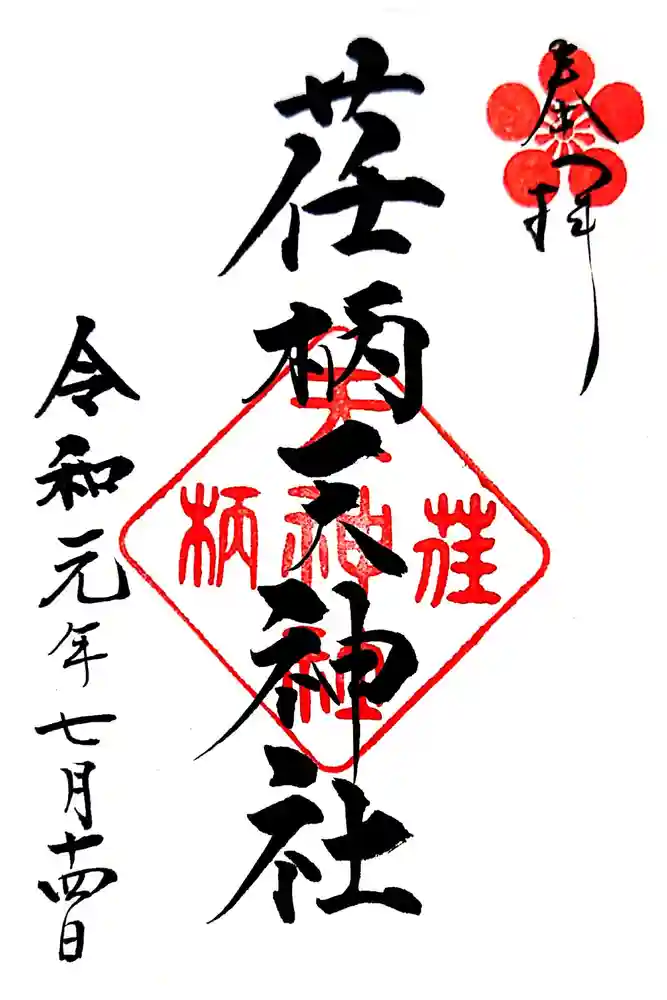 奉拝
荏柄天神社
令和元年七月十四日
荏柄天神社